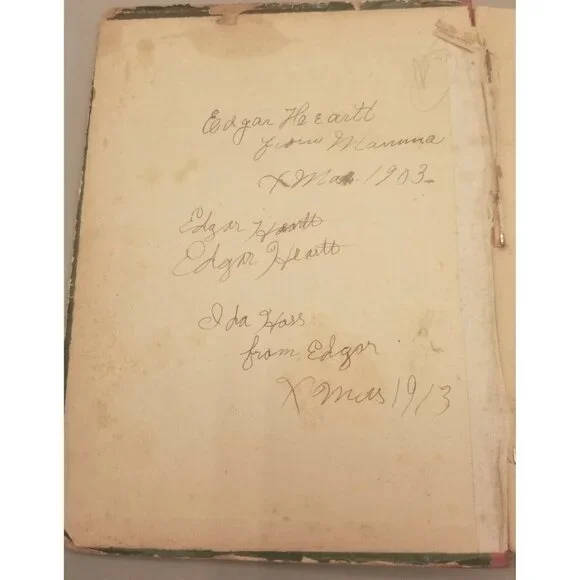 Edgar Heartt
from Mamma
XMas. 1903
Edgar Heartt
Edgar Heartt
Ida Hass
from Edgar
X Mas 1913